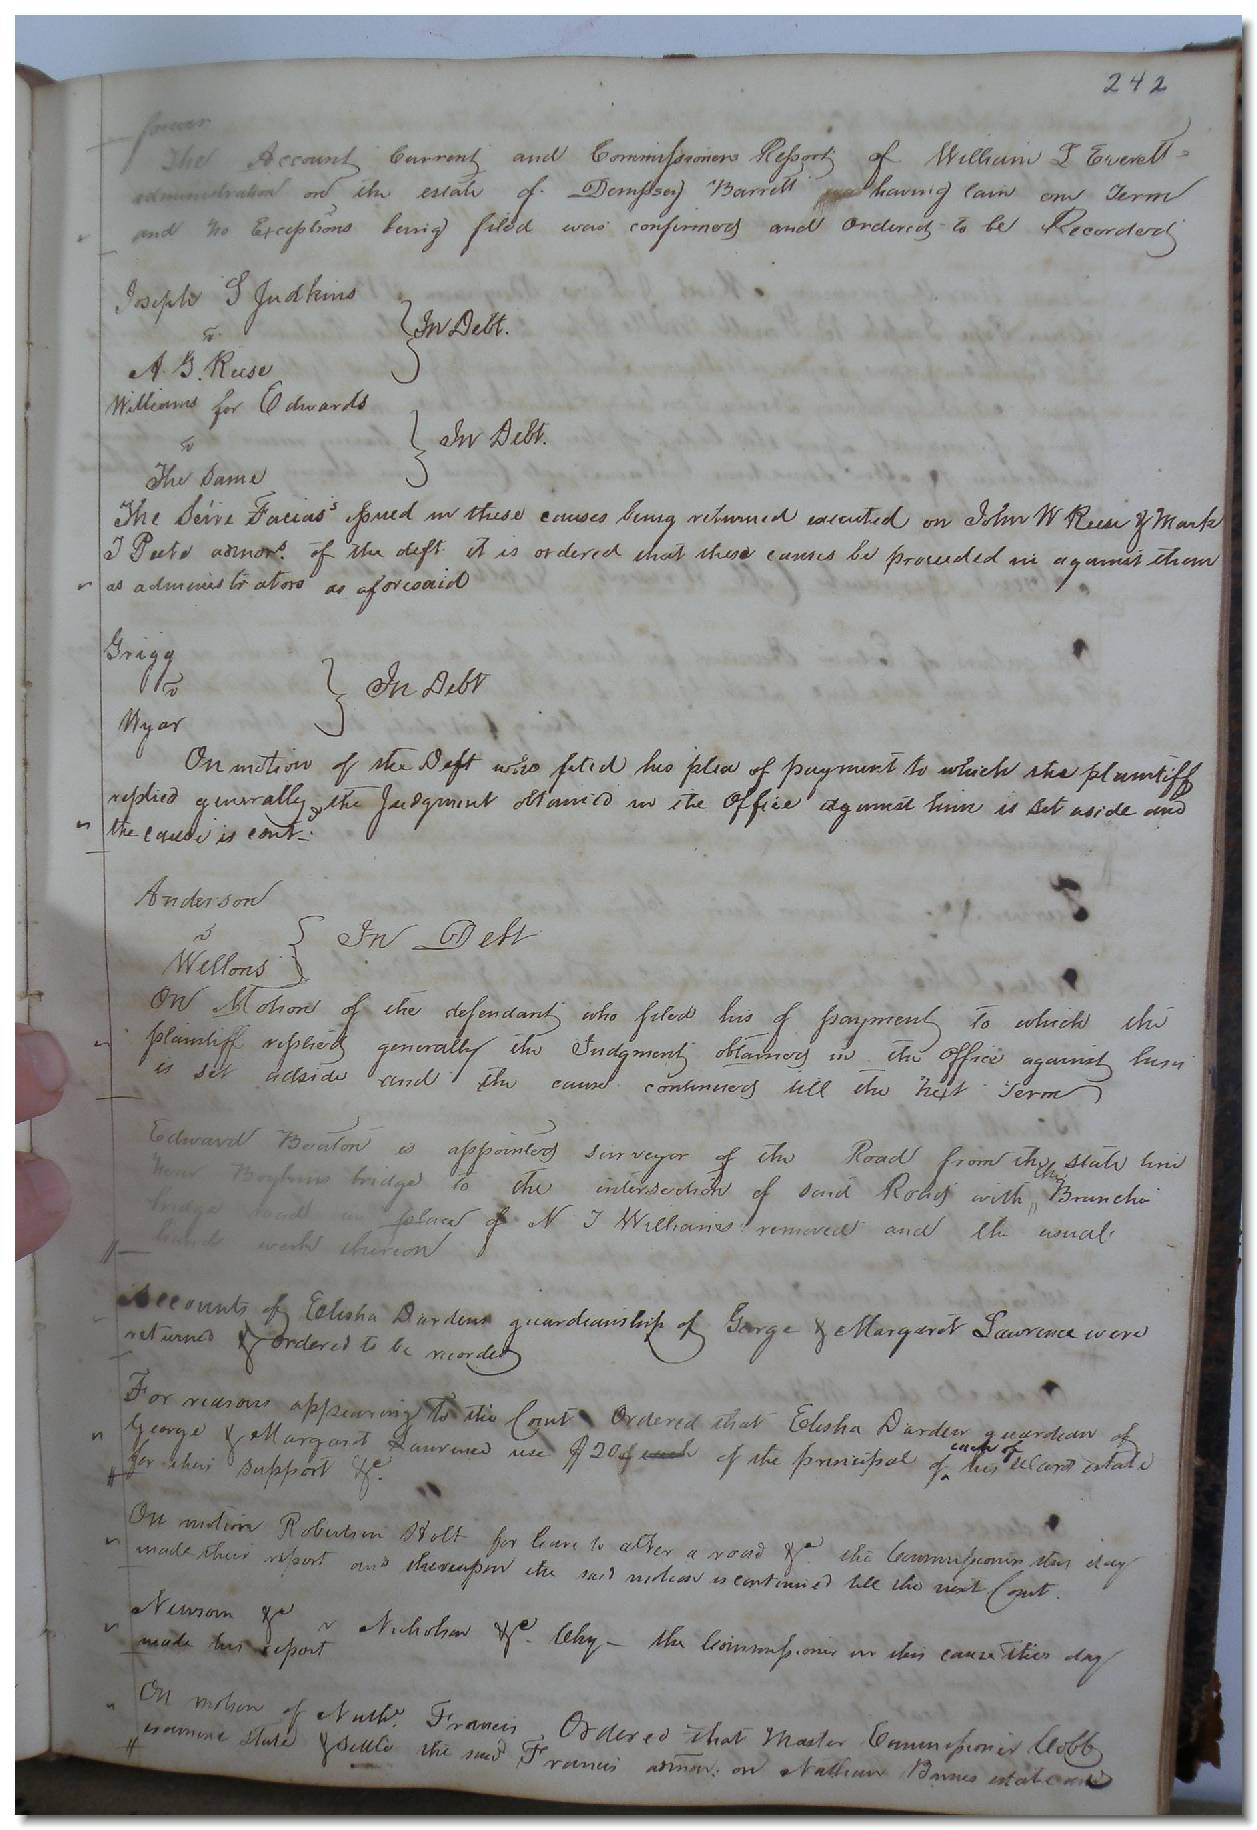 242
The Account Current and Commissioners Report of William T Everett
administration on the estate of Dempsey Barrett having lain one Term
and no Exceptions being filed was confirmed and Ordered to be Recorded
Joseph S Judkins
vs
A. G. Reese
In Debt.
Williams for Edwards
vs
The Same
In Debt.
The Scire Facias's issued in these causes being returned executed on John W Reese & Mark
J Peete admors. of the deft it is ordered that these causes be proceeded in against them
as administrators as aforesaid
Grigg
vs
Myar
In Debt
On motion of the Deft who filed his plea of payment to which the plaintiff
replied generally the Judgment obtained in the Office against him is set aside and
the cause is contd.
Anderson
vs
Wellons
In Debt
On Motion of the defendant who filed his of payment to which the
plaintiff replied generally the Judgment obtained in the Office against him
is set adside and the cause continued till the next Term
Edward Beaton is appointed surveyor of the Road from the state line
near Boykins bridge to the intersection of said Road with the Branche
bridge road in place of N T Williams removed and the usual
hands work thereon
Accounts of Elisha Dardens guardianship of George & Margaret Lawrence were
returned & ordered to be recorded
For reasons appearing to the Court Ordered that Elisha Darden guardian of
George & Margaret Lawrence use $20 of the principal of each of his wards estate
for their support &c.
On motion Robertson Holt for leave to alter a road &c. the Commissioners this day
made their report and thereupon the said motion is continued till the next Court.
Newsom &c v Nicholson &c. Chy - the Commissioner in this cause this day
made his report
On motion of Nathl. Francis Ordered that Master Commissioner Cobb
examine state & settle the said Francis admor: on Nathan Barnes estate and